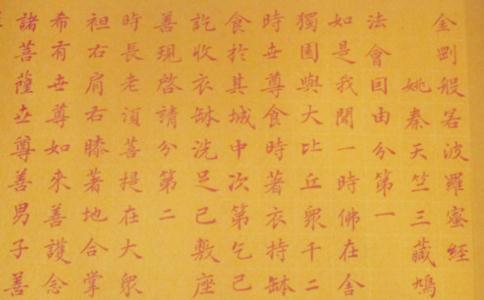 金剛般若波羅蜜經
姚秦天竺三藏鳩
法會因由分第一
如是我聞一時佛在舍
獨園與大比丘衆千二
時世尊食時著衣持缽
食於其城中次第乞已
訖收衣缽洗足已敷座
善現啓請分第二
時長老須菩提在大衆
袒右肩右膝著地合掌
希有世尊如來善護念
諸菩薩世尊善男子善